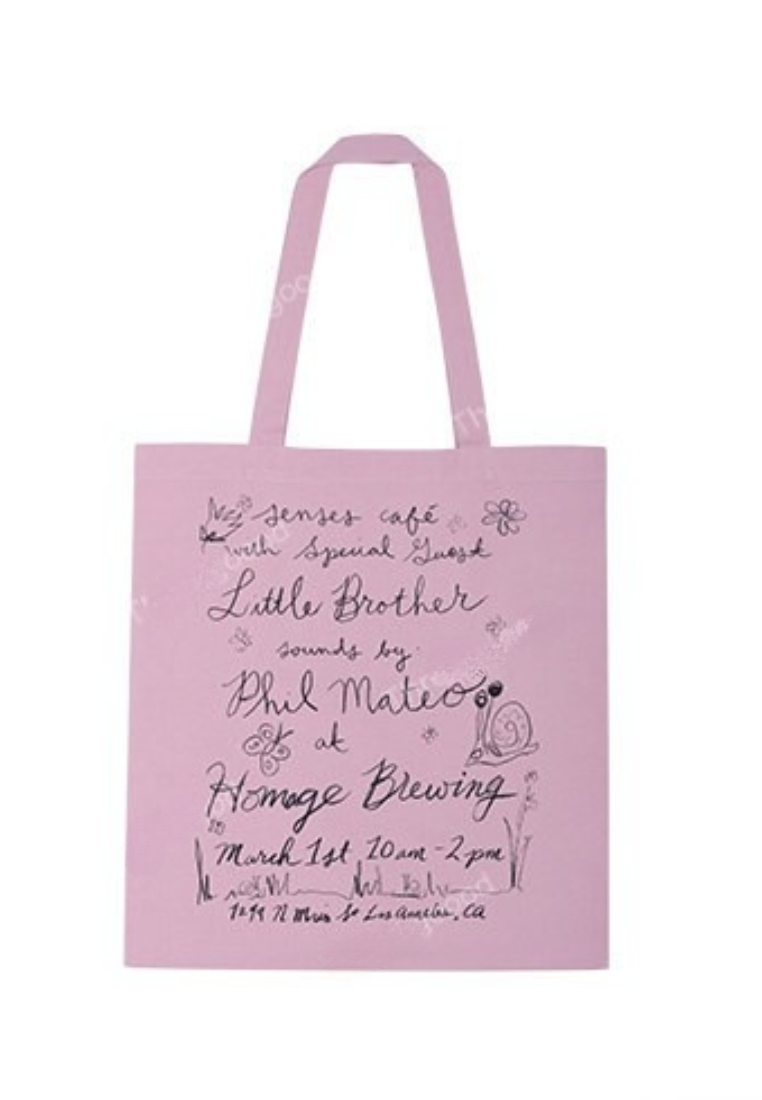 senses café
with Special Guest
Little Brother
sounds by:
Phil Mateo
at
Homage Brewing
March 1st 10am-2pm
N Main St Los Angeles, CA